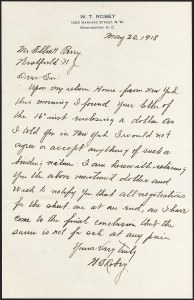 W. T. ROBEY
1420 HARVARD STREET, N.W.
WASHINGTON, D. C.
May 20, 1918
Mr Elliott Perry
Westfield N.J.
Dear Sir:
Upon my return from New York
this evening I found your letter of
the 16" inst enclosing a dollar. As
I told you in New York I would not
agree or accept anything of such a
binding nature. I am herewith returning
you the above mentioned dollar and
wish to notify you that all negotiations
for the sheet are at an end, as I have
come to the final conclusion that the
same is not for sale at any price.
Yours Very Truly,
W T Robey